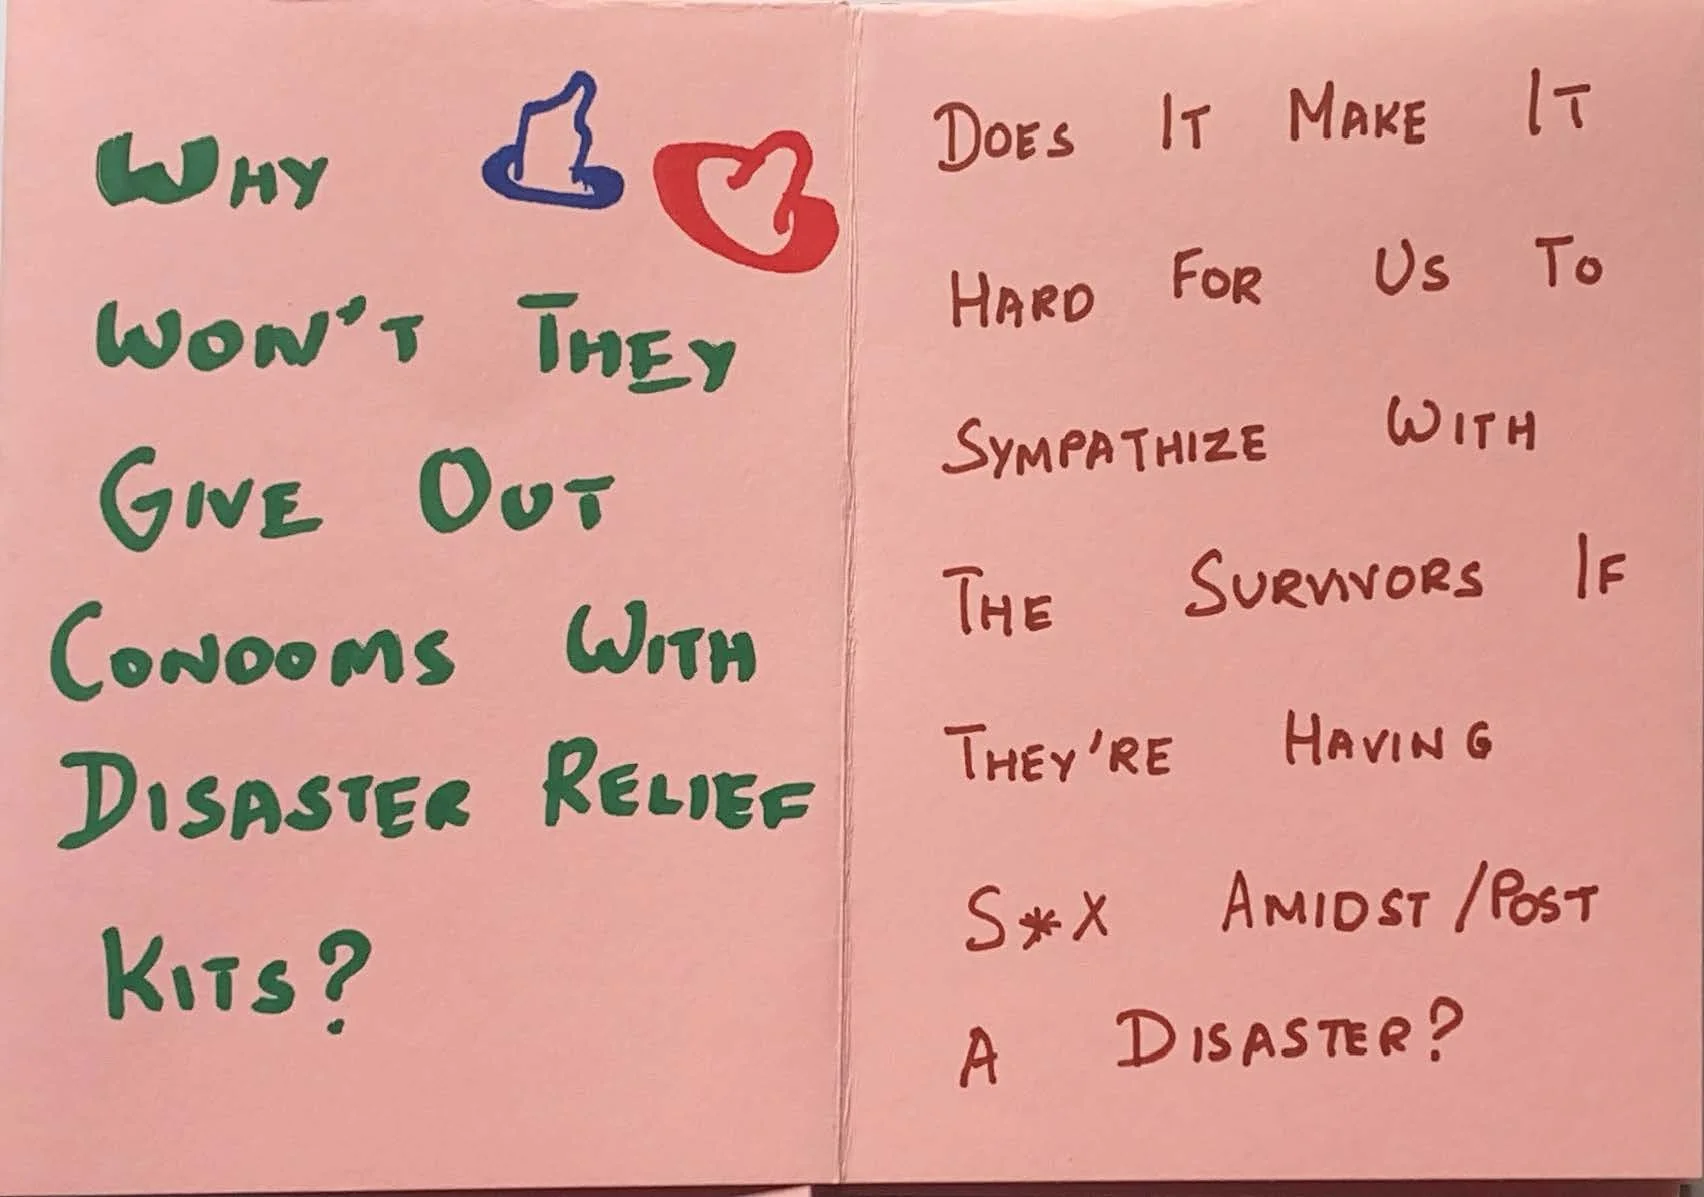 WHY
WON'T THEY
GIVE OUT
CONDOMS WITH
DISASTER RELIEF
KITS?
DOES IT MAKE IT
HARD FOR US TO
SYMPATHIZE WITH
THE SURVIVORS IF
THEY'RE HAVING
S*X AMIDST/POST
A DISASTER?